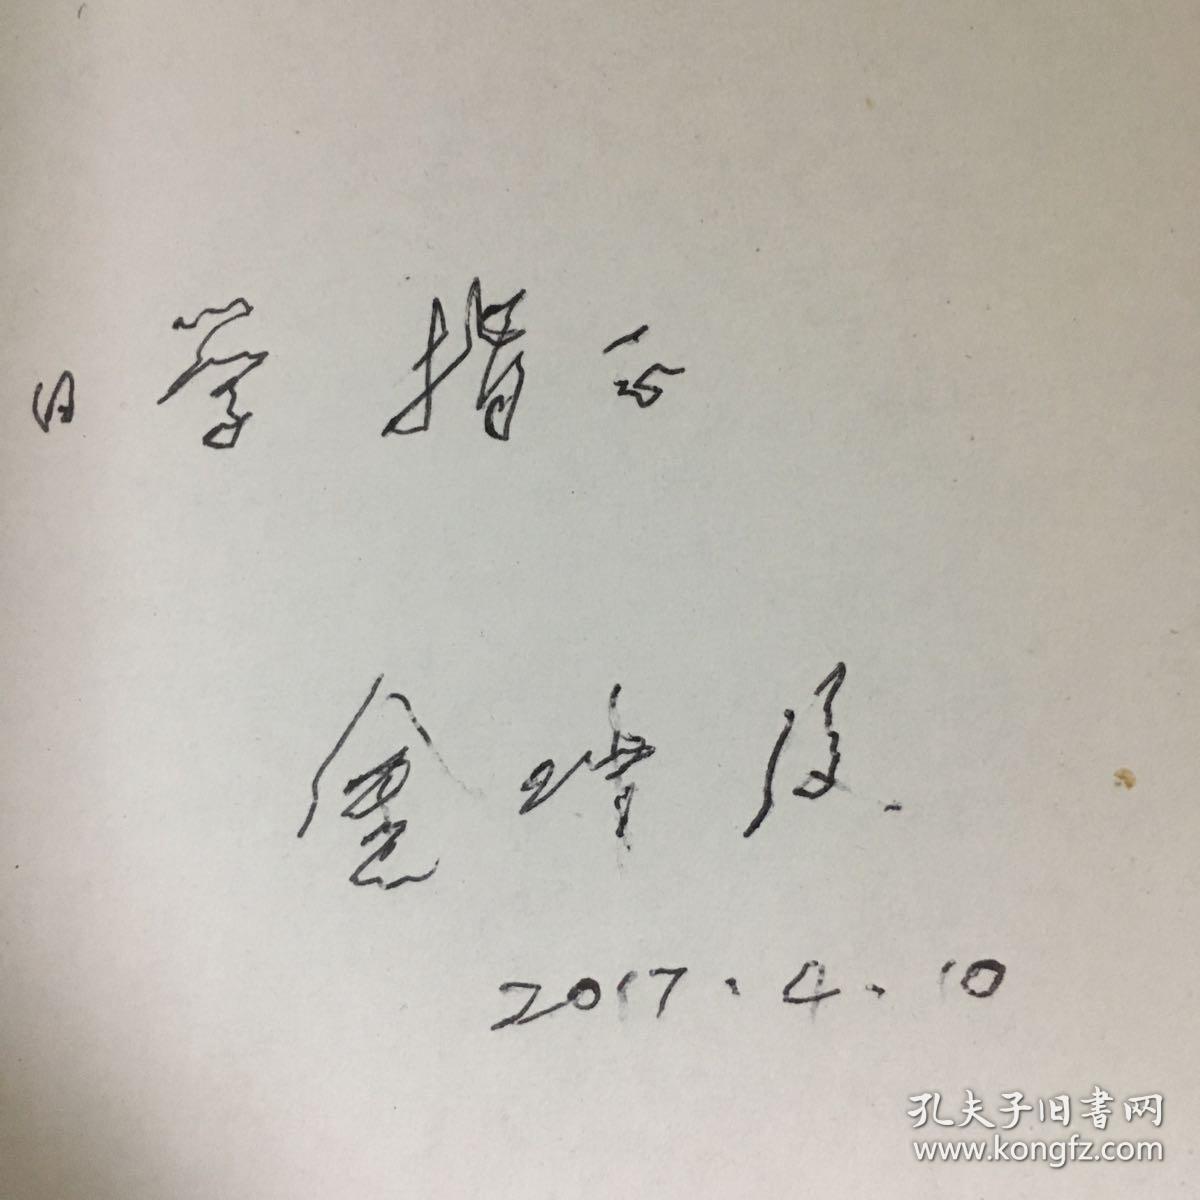 同学指正
金冲及
2017.4.10
孔夫子旧書网
www.kongfz.com